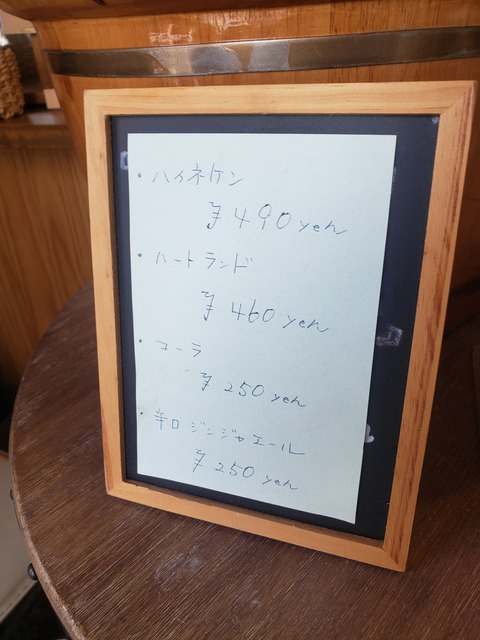 ・ハイネケン
¥490 yen
・ハートランド
¥460 yen
・コーラ
¥250 yen
・辛口ジンジャエール
¥250 yen